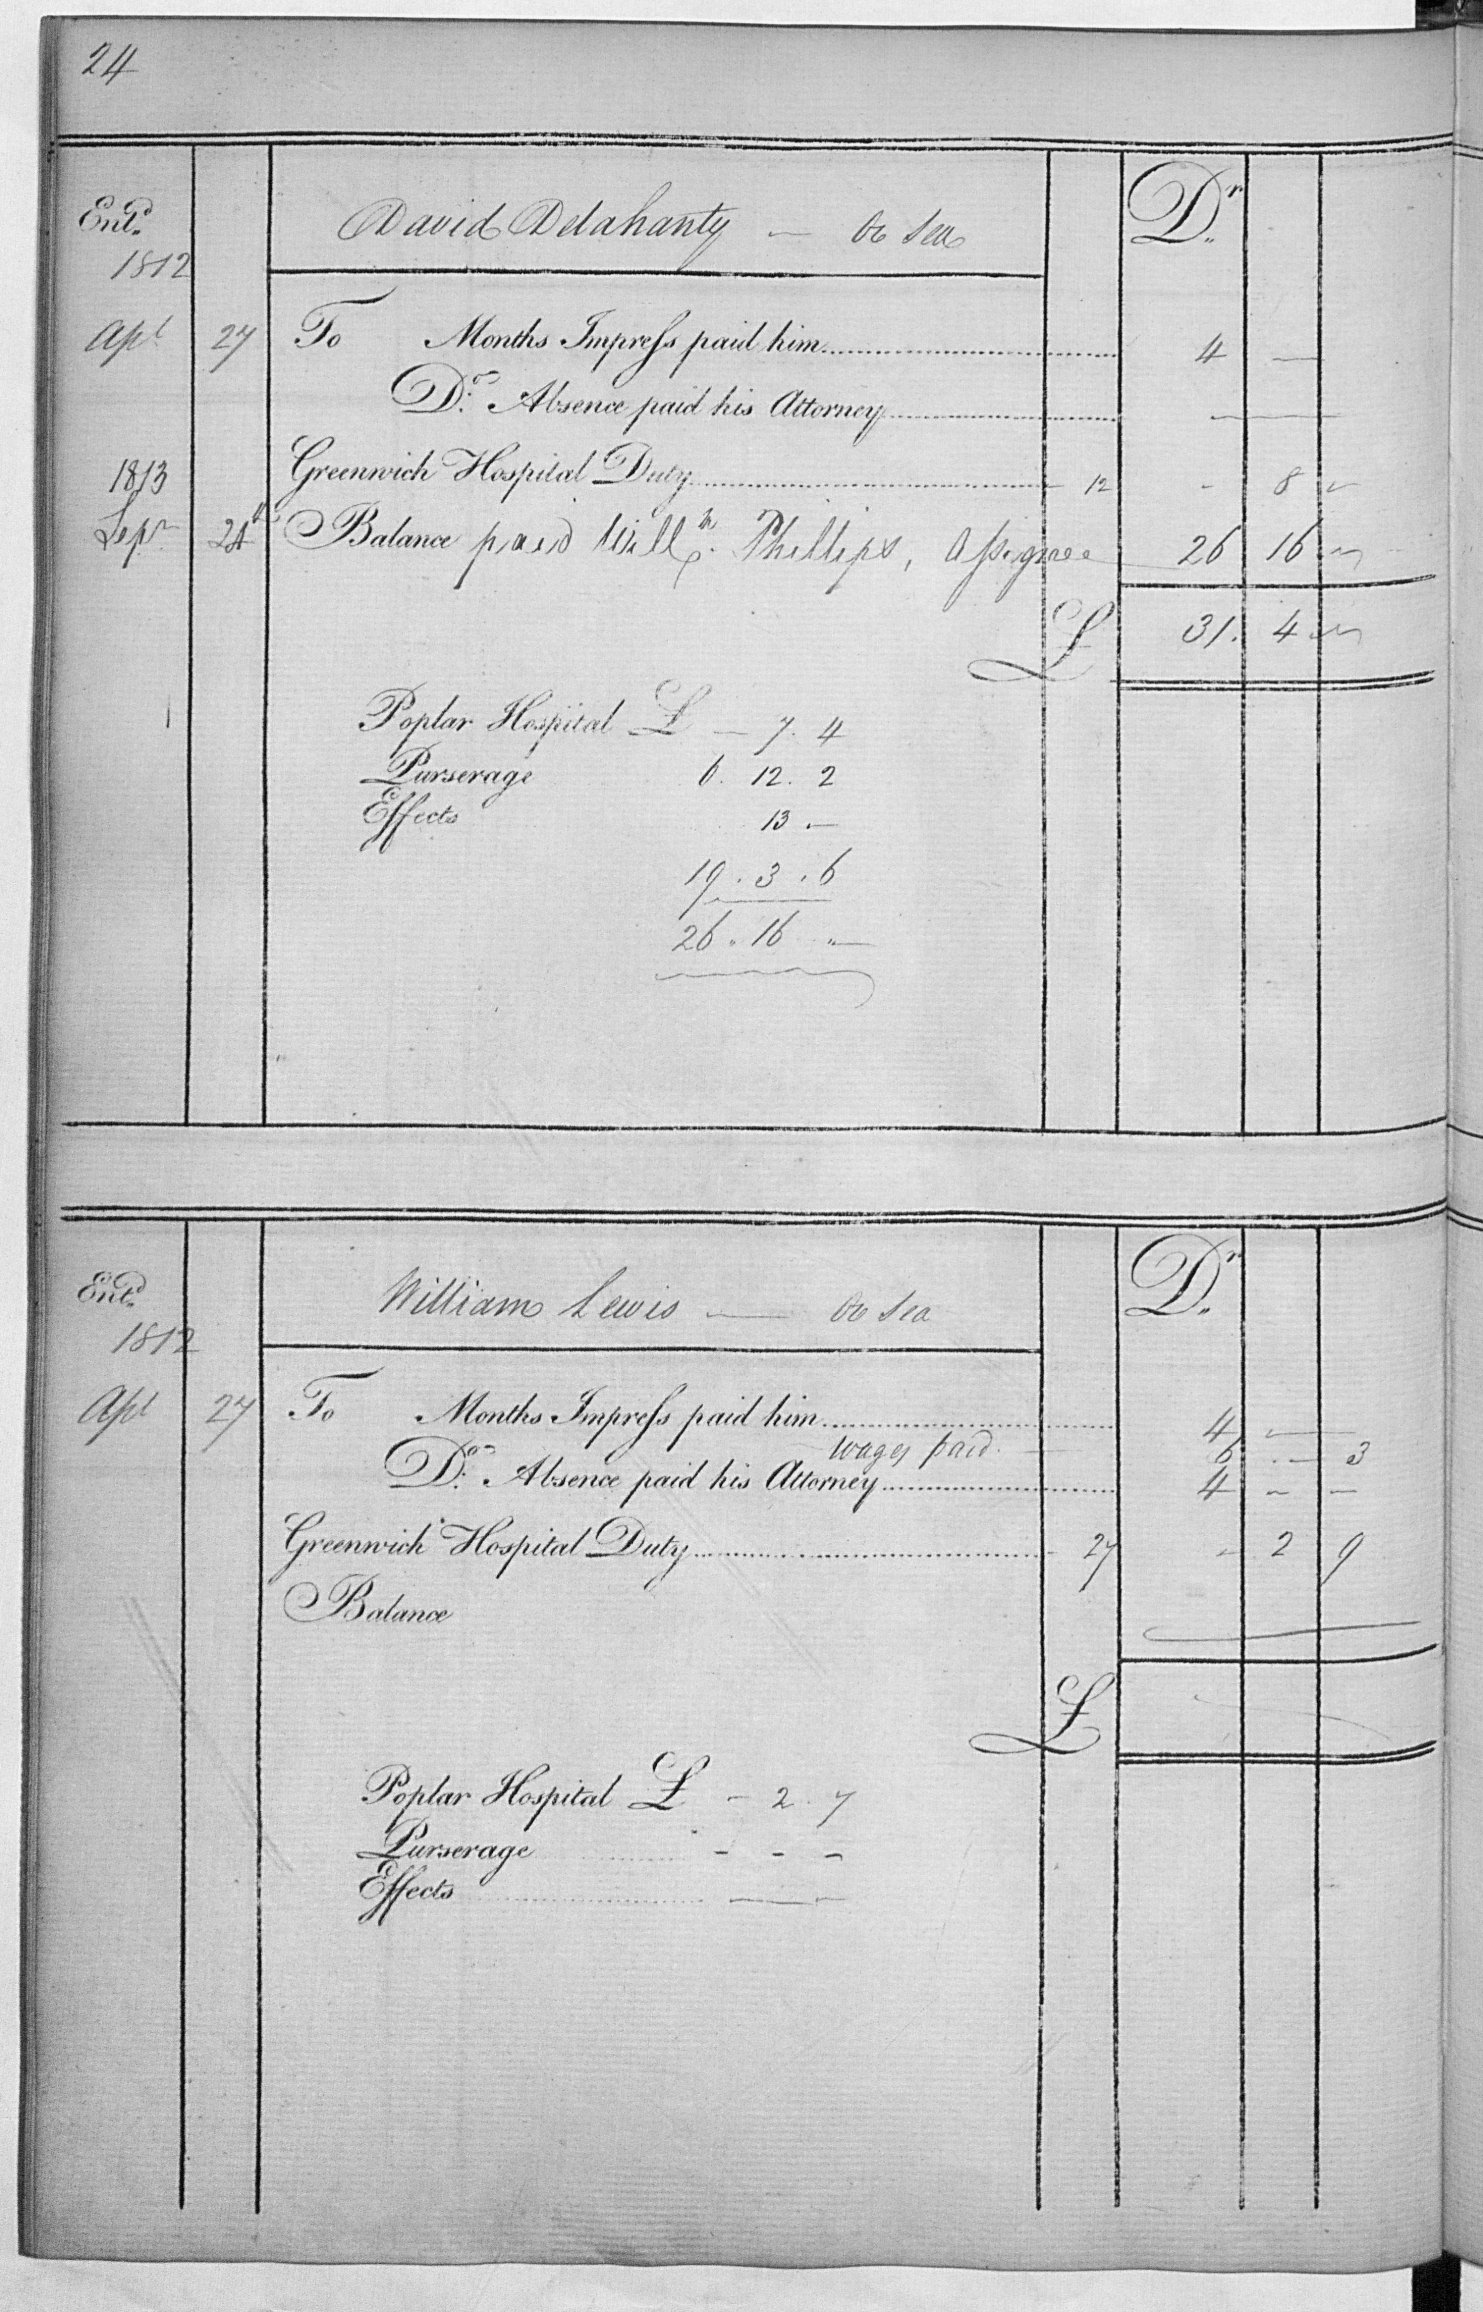 24
Ent.d Dr
David Delahanty — Do Sea
1812
Apl 27 To Months Impress paid him 4 —
Do. Absence paid his Attorney —
1813 Greenwich Hospital Duty 12 - 8 -
Sepr 24th Balance paid Willm. Phillips, Assignee 26 16 -
£ 31. 4 -
Poplar Hospital £ — 7. 4
Purserage 6. 12. 2
Effects 13 . —
19 . 3 . 6
26 . 16 . —
Ent.d Dr
William Lewis — Do Sea
1812
Apl 27 To Months Impress paid him 4 —
wages paid — 6 . — 3
Do. Absence paid his Attorney 4 - -
Greenwich Hospital Duty 27 - 2 9
Balance
£
Poplar Hospital £ - 2 . 7
Purserage - - -
Effects —